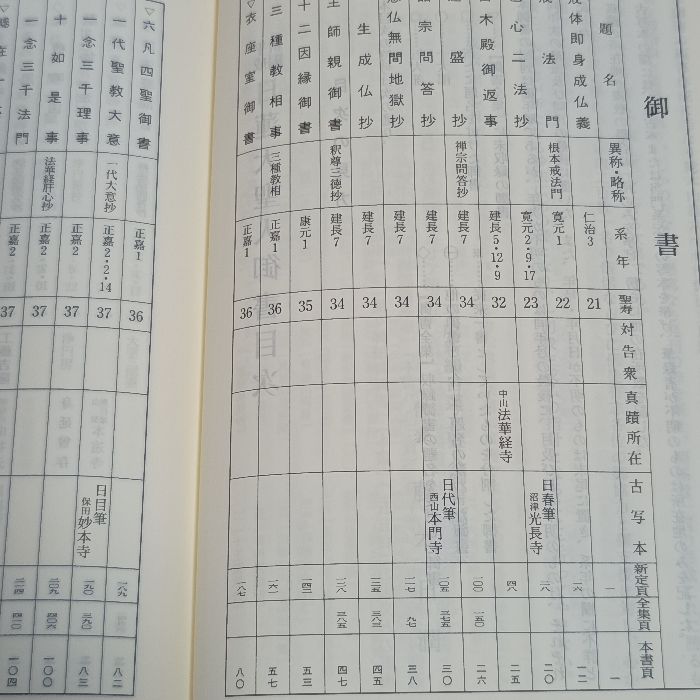 御書
題名
異称・略称
系年
聖寿
対告衆
真蹟所在
古写本
新定頁
全集頁
本書頁
戒体即身成仏義
仁治3
21
一
一
戒法門
根本戒法門
寛元1
22
一六
一二
色心二法抄
寛元2・9・17
23
日春筆
沼津光長寺
二八
二〇
富木殿御返事
建長5・12・9
32
中山法華経寺
四八
二五
盛抄
禅宗問答抄
建長7
34
一〇〇
一五〇
二六
諸宗問答抄
建長7
34
日代筆
西山本門寺
一〇五
三七五
三〇
念仏無間地獄抄
建長7
34
九七
三八
生成仏抄
建長7
34
三八三
四五
主師親御書
釈尊三徳抄
建長7
34
三八五
四七
十二因縁御書
康元1
35
五三
三種教相事
三種教相
正嘉1
36
五七
衣座室御書
正嘉1
36
一八七
八〇
▽六凡四聖御書
正嘉1
36
一八九
八二
一代聖教大意
一代大意抄
正嘉2・2・14
37
日目筆
保田妙本寺
一九〇
三九〇
八三
一念三千理事
正嘉2
37
二〇九
四〇六
一〇〇
十如是事
法華経肝心抄
正嘉2
37
二一四
四一〇
一〇四
一念三千法門
正嘉2
37